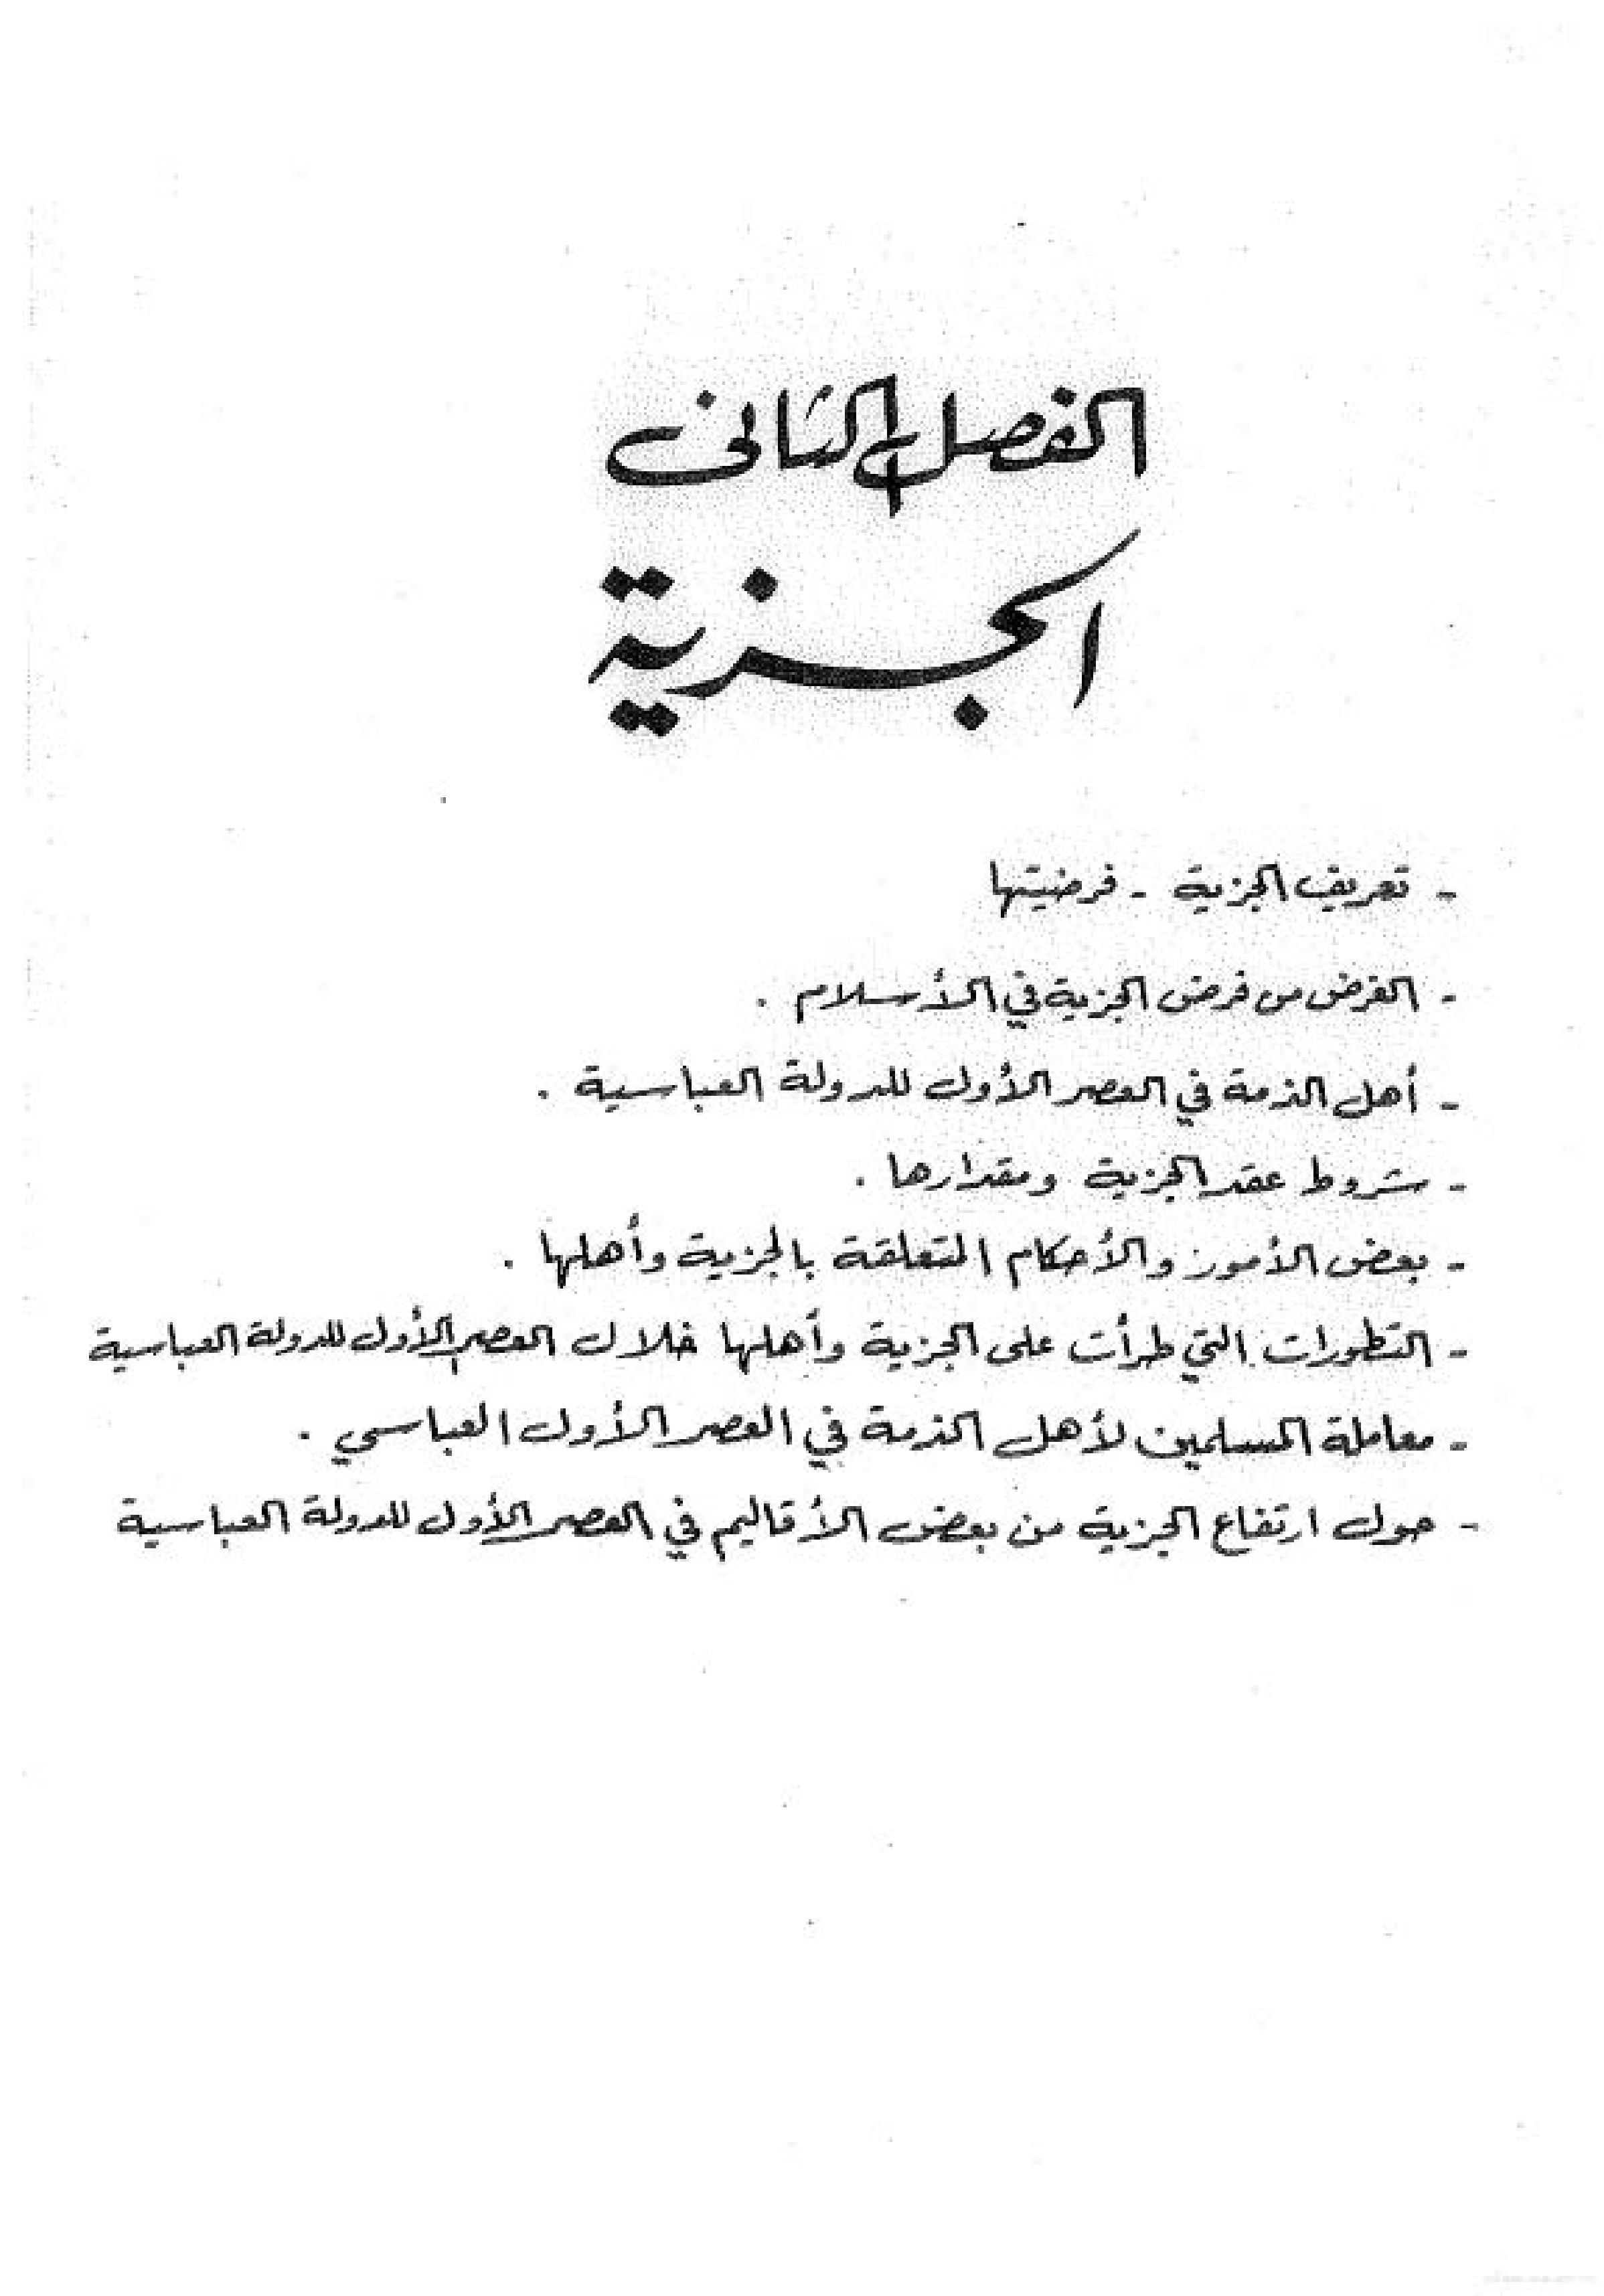 الفصل الثاني
الجزية
- تعريف الجزية - فرضيتها
- الغرض من فرض الجزية في الأسلام .
- أهل الذمة في العصر الأول للدولة العباسية .
- شروط عقد الجزية ومقدارها .
- بعض الأمور والأحكام المتعلقة بالجزية وأهلها .
- التطورات التي طرأت على الجزية وأهلها خلال العصر الأول للدولة العباسية
- معاملة المسلمين لأهل الذمة في العصر الأول العباسي .
- حول ارتفاع الجزية من بعض الأقاليم في العصر الأول للدولة العباسية